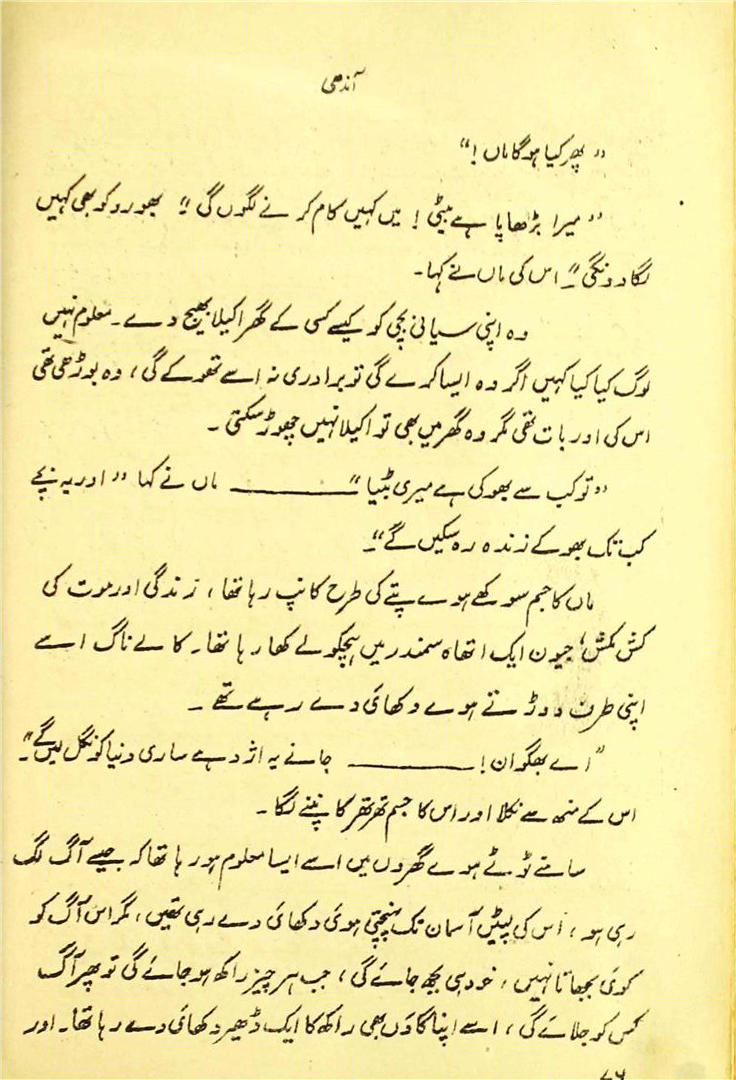 آندھی
”پھر کیا ہوگا ماں!“
”میرا بڑھاپا ہے بیٹی! میں کہیں کام کرنے لگوں گی“ بھورو کو بھی کہیں
لگا دونگی“ اس کی ماں نے کہا۔
وہ اپنی سیانی بچی کو کیسے کسی کے گھر اکیلا بھیج دے۔ معلوم نہیں
لوگ کیا کیا کہیں اگر وہ ایسا کرے گی تو برادری نہ اسے تھوکے گی، وہ بوڑھی تھی
اس کی اور بات تھی مگر وہ گھر میں بھی تو اکیلا نہیں چھوڑ سکتی۔
”تو کب سے بھوکی ہے میری بٹیا“ ——— ماں نے کہا ”اور یہ بچے
کب تک بھوکے زندہ رہ سکیں گے“
ماں کا جسم سوکھے ہوے پتے کی طرح کانپ رہا تھا، زندگی اور موت کی
کش مکش، جیون ایک اتھاہ سمندر میں ہچکولے کھا رہا تھا۔ کالے ناگ اسے
اپنی طرف دوڑتے ہوے دکھائی دے رہے تھے۔
”اے بھگوان! ——— جانے یہ اژدہے ساری دنیا کو نگل لیں گے“۔
اس کے منھ سے نکلا اور اس کا جسم تھر تھر کانپنے لگا۔
سامنے ٹوٹے ہوے گھروں میں اسے ایسا معلوم ہو رہا تھا کہ جیسے آگ لگ
رہی ہو، اس کی لپٹیں آسمان تک پہنچتی ہوئی دکھائی دے رہی تھیں، مگر اس آگ کو
کوئی بجھاتا نہیں، خود ہی بجھ جائے گی، جب ہر چیز راکھ ہو جائے گی تو پھر آگ
کس کو جلائے گی، اسے اپنا گاؤں بھی راکھ کا ایک ڈھیر دکھائی دے رہا تھا۔ اور